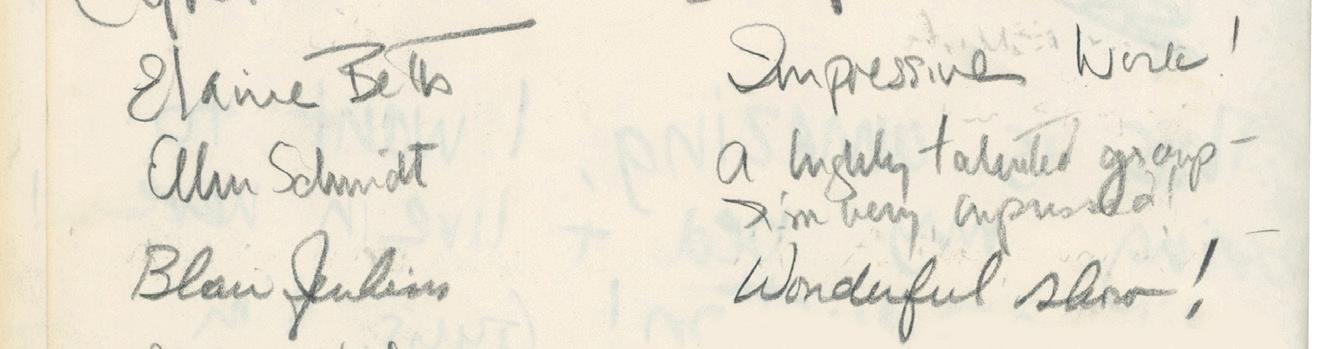 Elaine Betts Impressive Work!
Ellen Schmidt A highly talented group -
I'm very impressed!
Blair Jenkins Wonderful show!